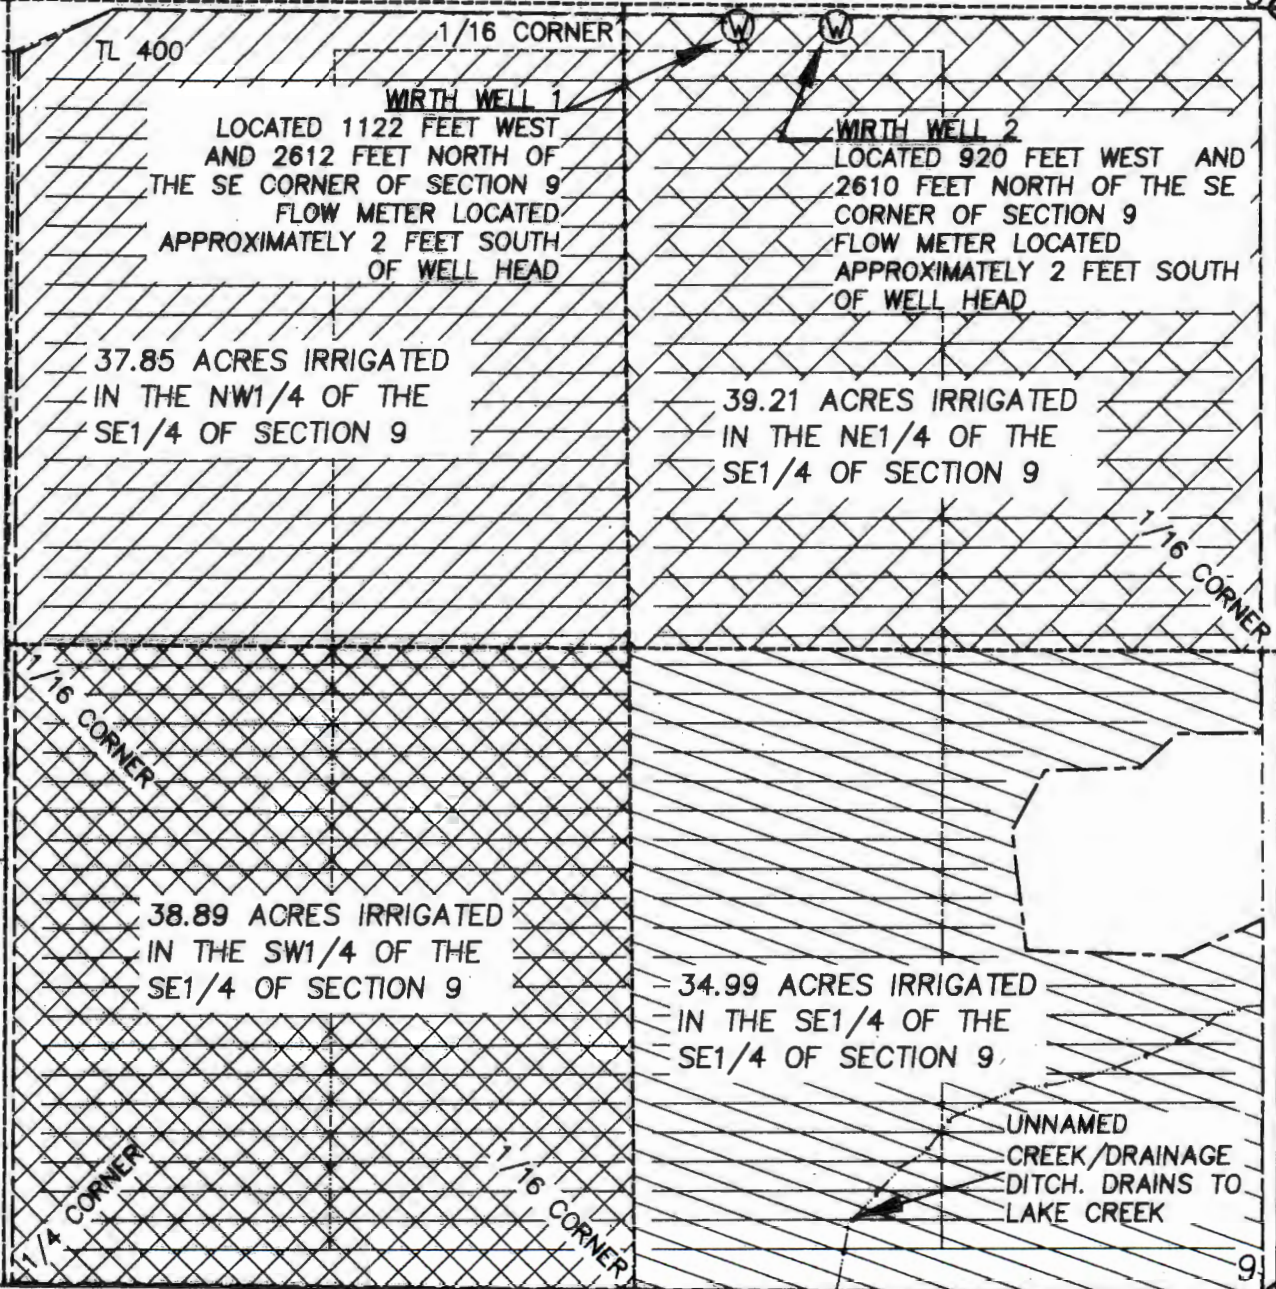 1/16 CORNER
TL 400
W
W
WIRTH WELL 1
LOCATED 1122 FEET WEST
AND 2612 FEET NORTH OF
THE SE CORNER OF SECTION 9
FLOW METER LOCATED
APPROXIMATELY 2 FEET SOUTH
OF WELL HEAD
WIRTH WELL 2
LOCATED 920 FEET WEST AND
2610 FEET NORTH OF THE SE
CORNER OF SECTION 9
FLOW METER LOCATED
APPROXIMATELY 2 FEET SOUTH
OF WELL HEAD
37.85 ACRES IRRIGATED
IN THE NW1/4 OF THE
SE1/4 OF SECTION 9
39.21 ACRES IRRIGATED
IN THE NE1/4 OF THE
SE1/4 OF SECTION 9
1/16 CORNER
1/16 CORNER
38.89 ACRES IRRIGATED
IN THE SW1/4 OF THE
SE1/4 OF SECTION 9
34.99 ACRES IRRIGATED
IN THE SE1/4 OF THE
SE1/4 OF SECTION 9
UNNAMED
CREEK/DRAINAGE
DITCH. DRAINS TO
LAKE CREEK
1/4 CORNER
1/16 CORNER
9